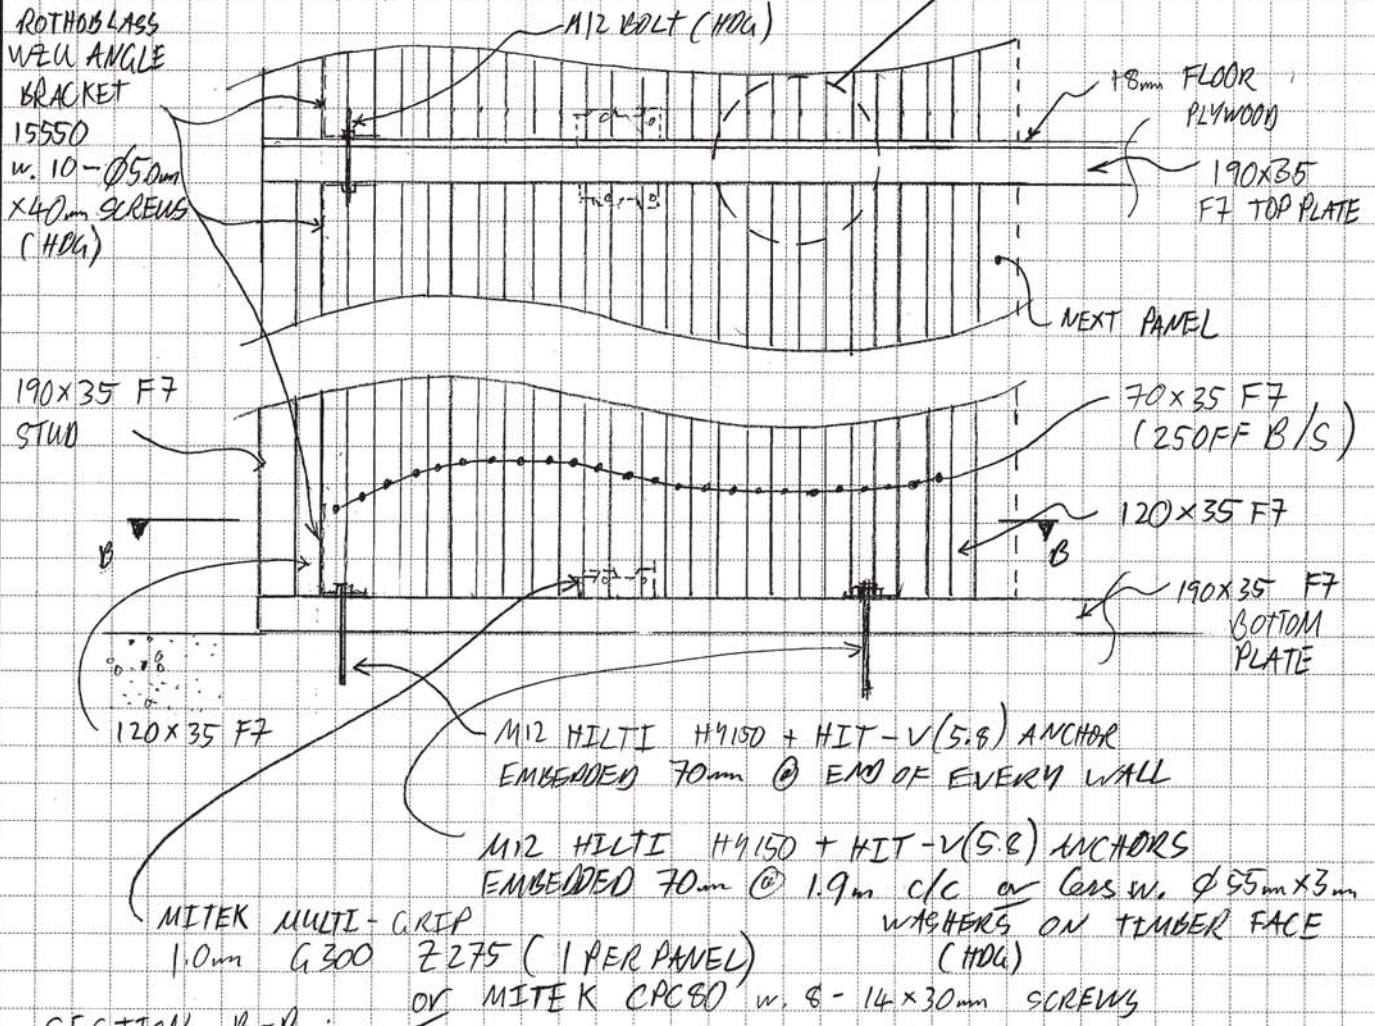 ROTHOBLASS
WZU ANGLE
BRACKET
15550
w. 10-Ø5.0mm
x40mm SCREWS
(HDG)
M12 BOLT (HDG)
18mm FLOOR
PLYWOOD
190x35
F7 TOP PLATE
NEXT PANEL
190x35 F7
STUD
70x35 F7
(25OFF B/S)
120x35 F7
B
B
190x35 F7
BOTTOM
PLATE
120x35 F7
M12 HILTI HY150 + HIT-V(5.8) ANCHOR
EMBEDDED 70mm @ END OF EVERY WALL
M12 HILTI HY150 + HIT-V(5.8) ANCHORS
EMBEDDED 70mm @ 1.9m c/c or less w. Ø55mmx3mm
WASHERS ON TIMBER FACE
(HDG)
MITEK MULTI-GRIP
1.0mm G300 Z275 (1 PER PANEL)
or MITEK CPC80 w. 8-14x30mm SCREWS
SECTION B-B: